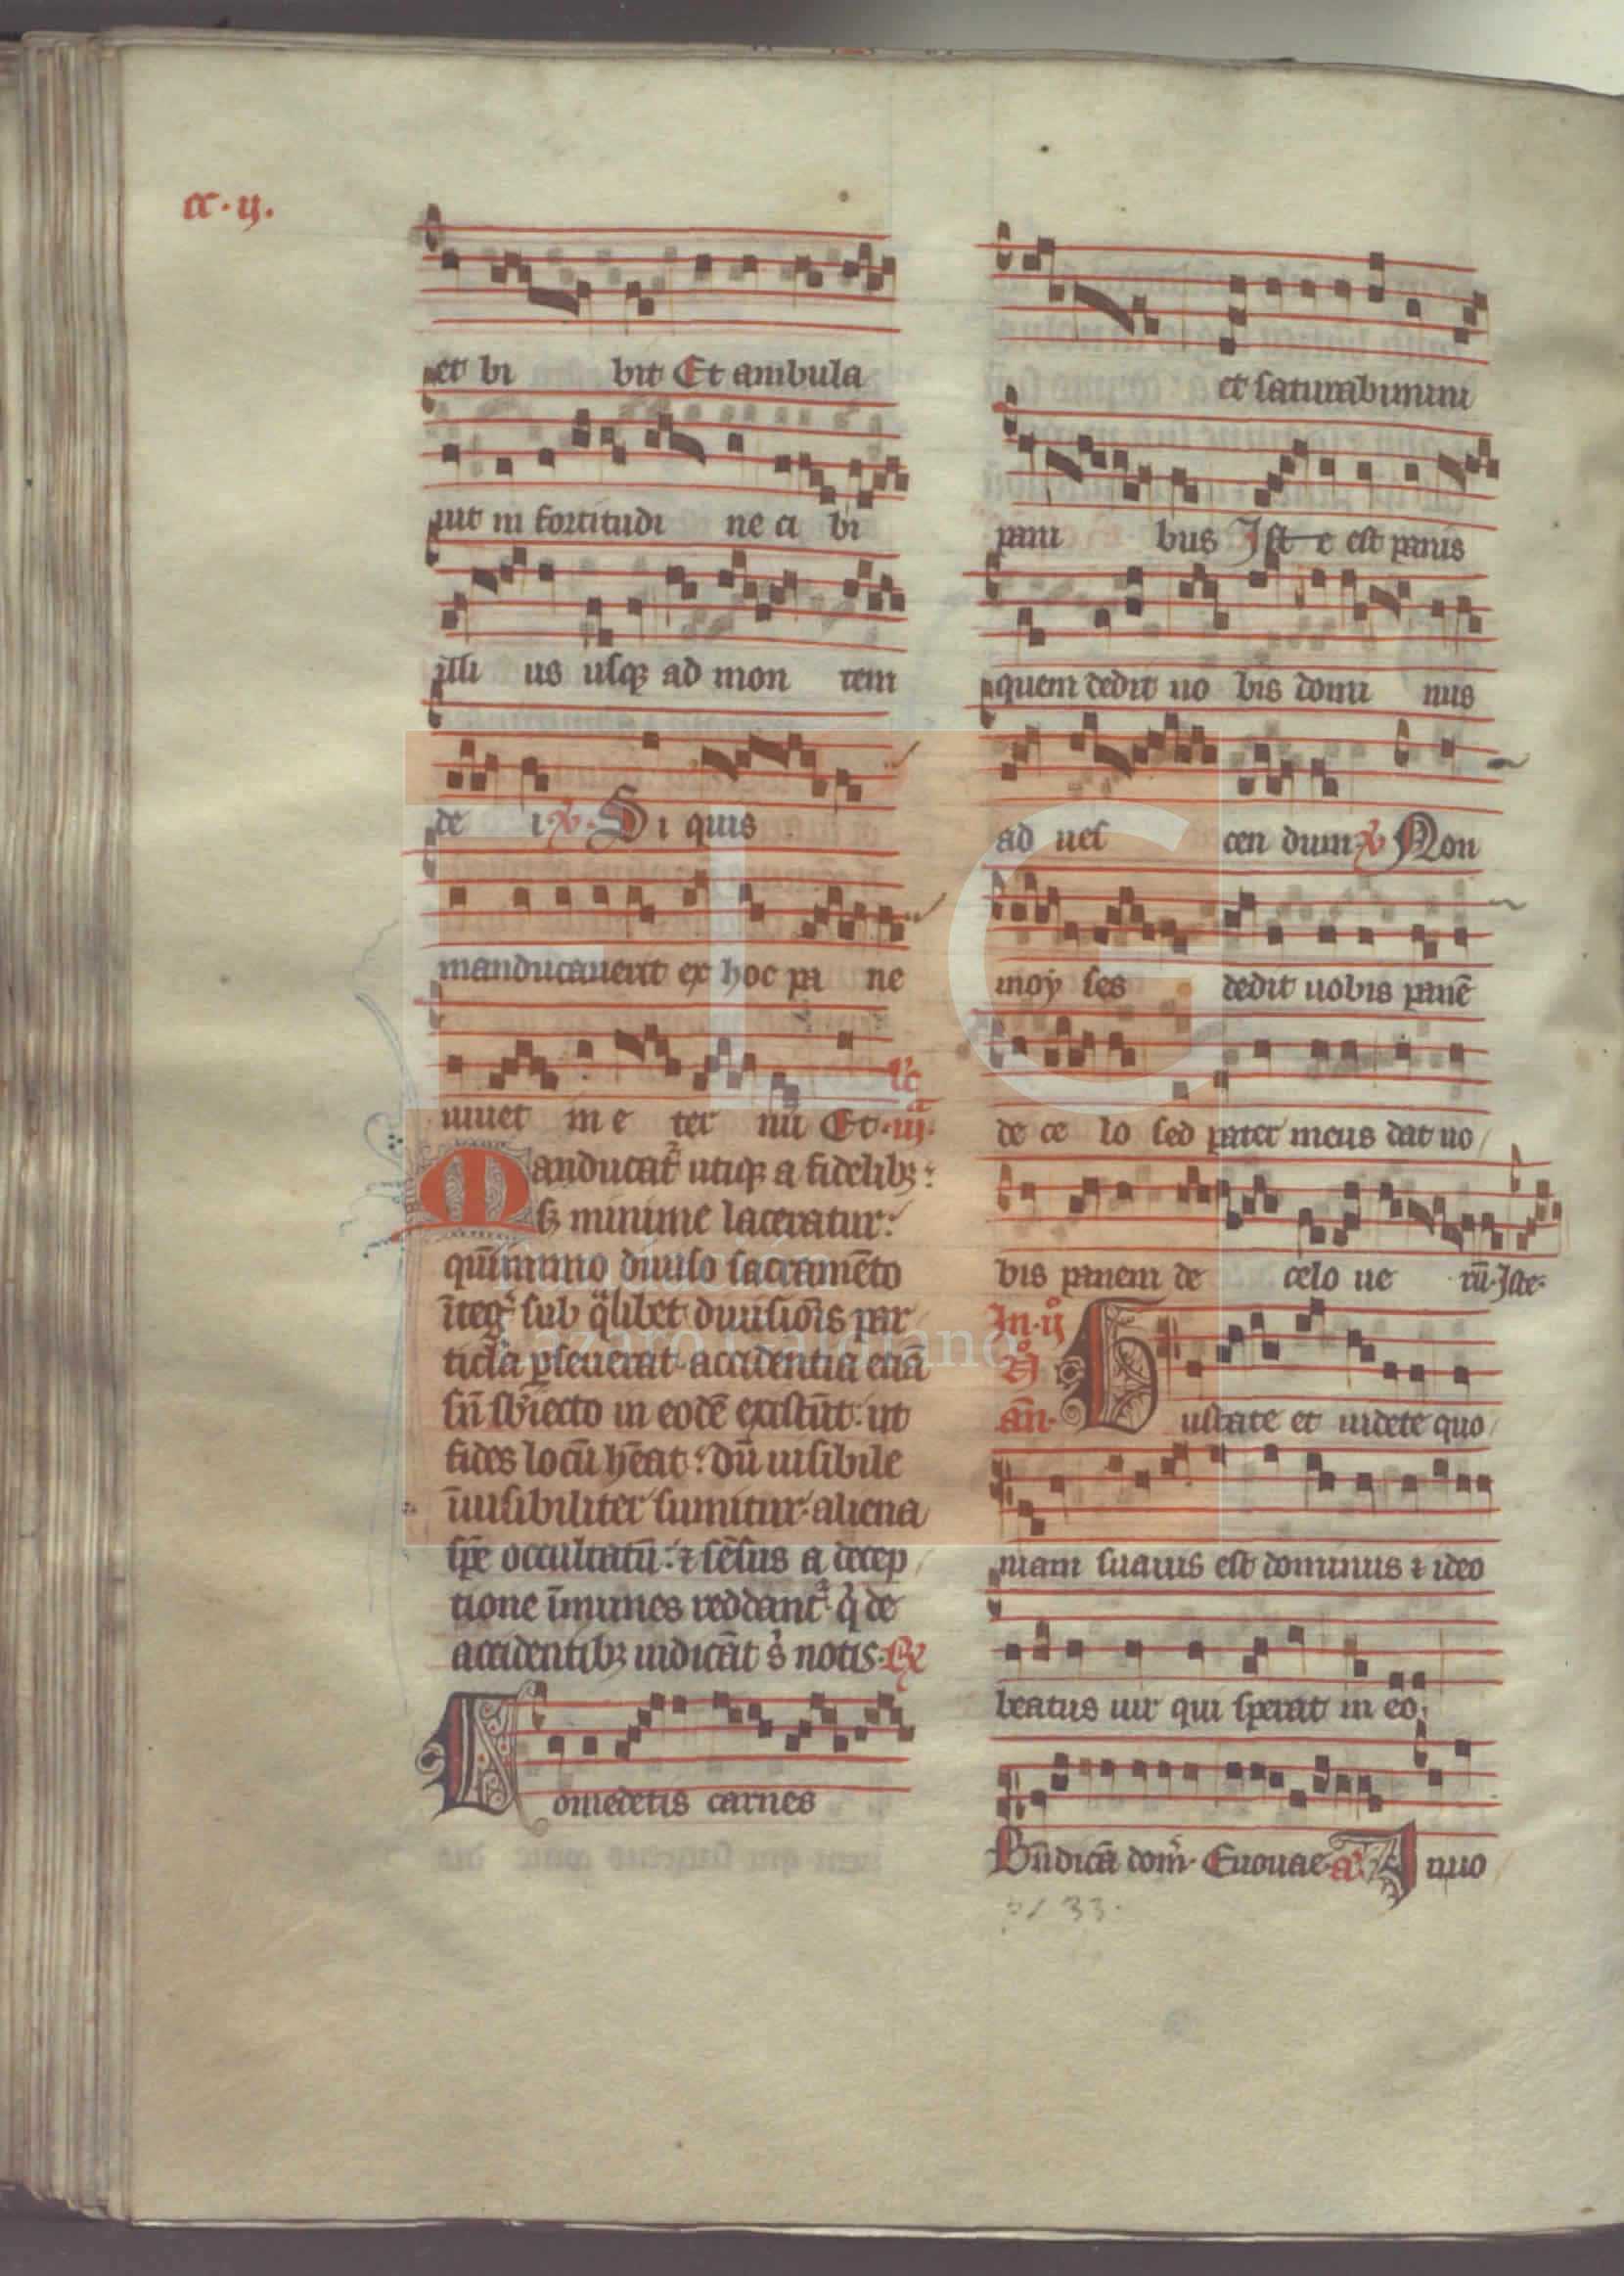 cc · ij.
et bi bit Et ambula
uit in fortitudi ne ci bi
illi us usqꝫ ad mon tem
de i · ℣. Si quis
manducauerit ex hoc pa ne
uiuet in e ter nū Et · iij.
Manducat᷑ utiqꝫ a fidelibꝫ:
sꝫ minime laceratur:
quīmmo diuiso sacramēto
īteg᷑ sub q̄libet diuisiōis par
ticĺa ꝑseuerat. accidentia etiā
sn̄ sb̄iecto in eodē existūt: ut
fides locū hēat: dū uisibile
īuisibiliter sumitur. aliena
spē occultatū: ⁊ sēsus a decep
tione īmunes reddant᷑ q̇ de
accidentibꝫ iudicāt s̓ notis. ℟
Comedetis carnes
et saturabimini
pani bus Iste est panis
quem dedit uo bis domi nus
ad ues cen dum ℣ Non
moy ses dedit uobis panē
de ce lo sed pater meus dat uo
bis panem de celo ue rū. Iste.
In · ijº
an̄.
Gustate et uidete quo
niam suauis est dominus ⁊ ideo
beatus uir qui sperat in eo.
Bn̄dicā dom̄. Euouae. a᷑. Inuo
33.
FLG
Fundación
Lázaro Galdiano